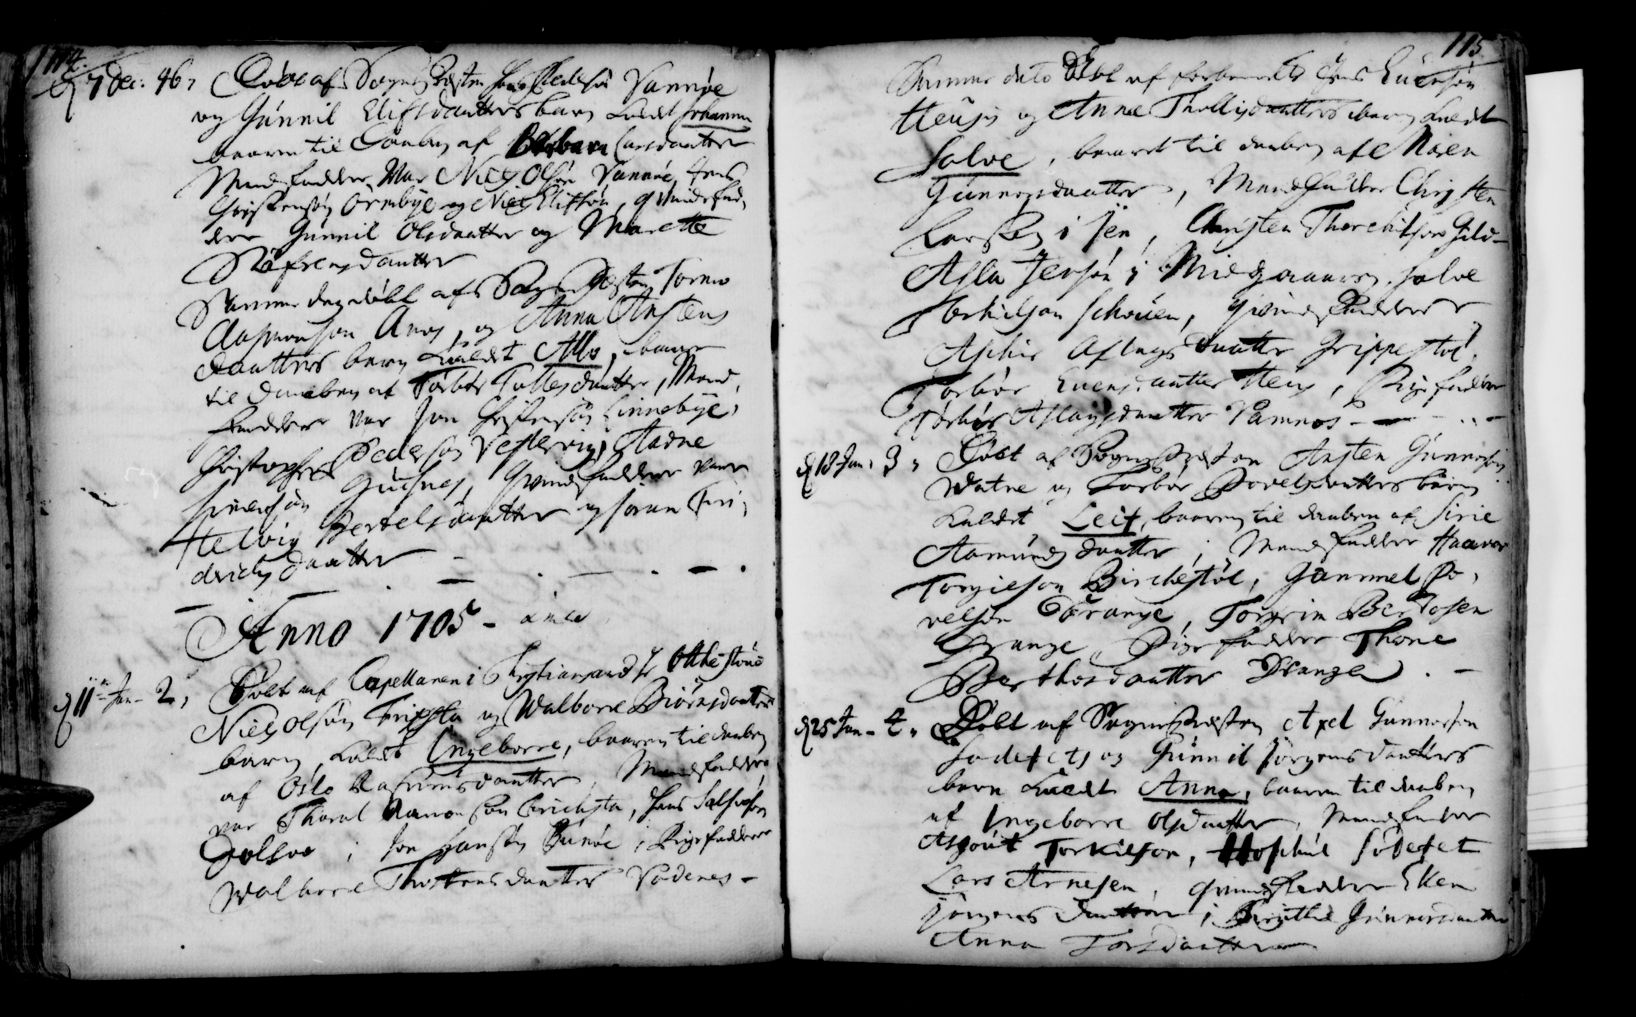 114.
d 7 Dec: 46, Døbt af Sogne Præsten Jens Pedersøn Vamnøe
og Gunnil Elifsdaatters barn kaldt Johanna
baaren til Daaben af Barbara Larsdaatter
Mandfaddere War Niels Olsøn Vamnøe, Jens
Christensøn Ormbye og Niels Elifsøn, qvindefad-
dere Gunnil Olsdaatter og Marette
Stefrensdaatter
Samme dag døbt af Sogne Præsten Tormo
Aasmonson Aros, og Anna Astens
daatters barn kaldet Alle, baaren
til Daaben af Torbor Tollesdaatter, Mand-
faddere var Jon Christensøn Linnebye,
Christopher Pedersøn Vestervig, Aadne
Simensøn Gusnes, qvindfaddere vare
Helvig Bertelsdaatter og Johanna Frie-
derichsdaatter
Anno 1705 -
d 11 Jan - 2, Døbt af Capellanen i Christiansand Hr Otthe Støud
Niels Olsøn Frixsta og Walborre Biørnsdaatters
barn, kaldt Ingeborre, baaren til daaben
af Osle Rasmusdaatter, Mandfaddere
var Tharal Aanonson Erichsta, Hans Salvesøn
; Jon Hansøn ; Pigefaddere
Walborre Thostensdaatter Vodenes -
115
Samme dato Døbt af forbemelte Jens Euensøn
Heusis og Anna Thollisdaatters barn kaldt
Salve, baaret til daaben af Maren
Gunnersdaatter, Mandfaddere Christen
Larsøn i Jen, Christen Thorchilsøn Gild-
Asla Jensøn i Midgaaren, Salve
Torkilson Schouen, qvindfaddere
Aschie Aslags daatter Grippestøl,
Torbor Euensdaatter Heus, Pigefaddere
Torbor Aslagsdaatter Vamnøs -
d 18 Jan, 3, Døbt af Sognepræsten Asten Gunnersøn
Watne og Torbor Povelsdaatters barn
kaldet Leif, baaren til daaben af Sirie
Aamunds daatter; Mandfaddere Haavor
Torgielson Birchestøl, Gammel Po-
velsøn Drange, Torgrim Bertosen
Drange, Pigefadder Thone
Berthosdaatter Drange. -
d 25 Jan - 4, Døbt af Sognepræsten Axel Gunnerson
Sødefet og Gunnil Jørgensdaatters
barn kaldt Anna, baaren til daaben
af Ingeborre Olsdaatter, Mandfadder
Asgout Torkilson, Sødefet
Lars Arnesen, qvindfaddere Elen
Jørgens daatter; Birgitte Gunnersdaatter
Anna Torsdaatter